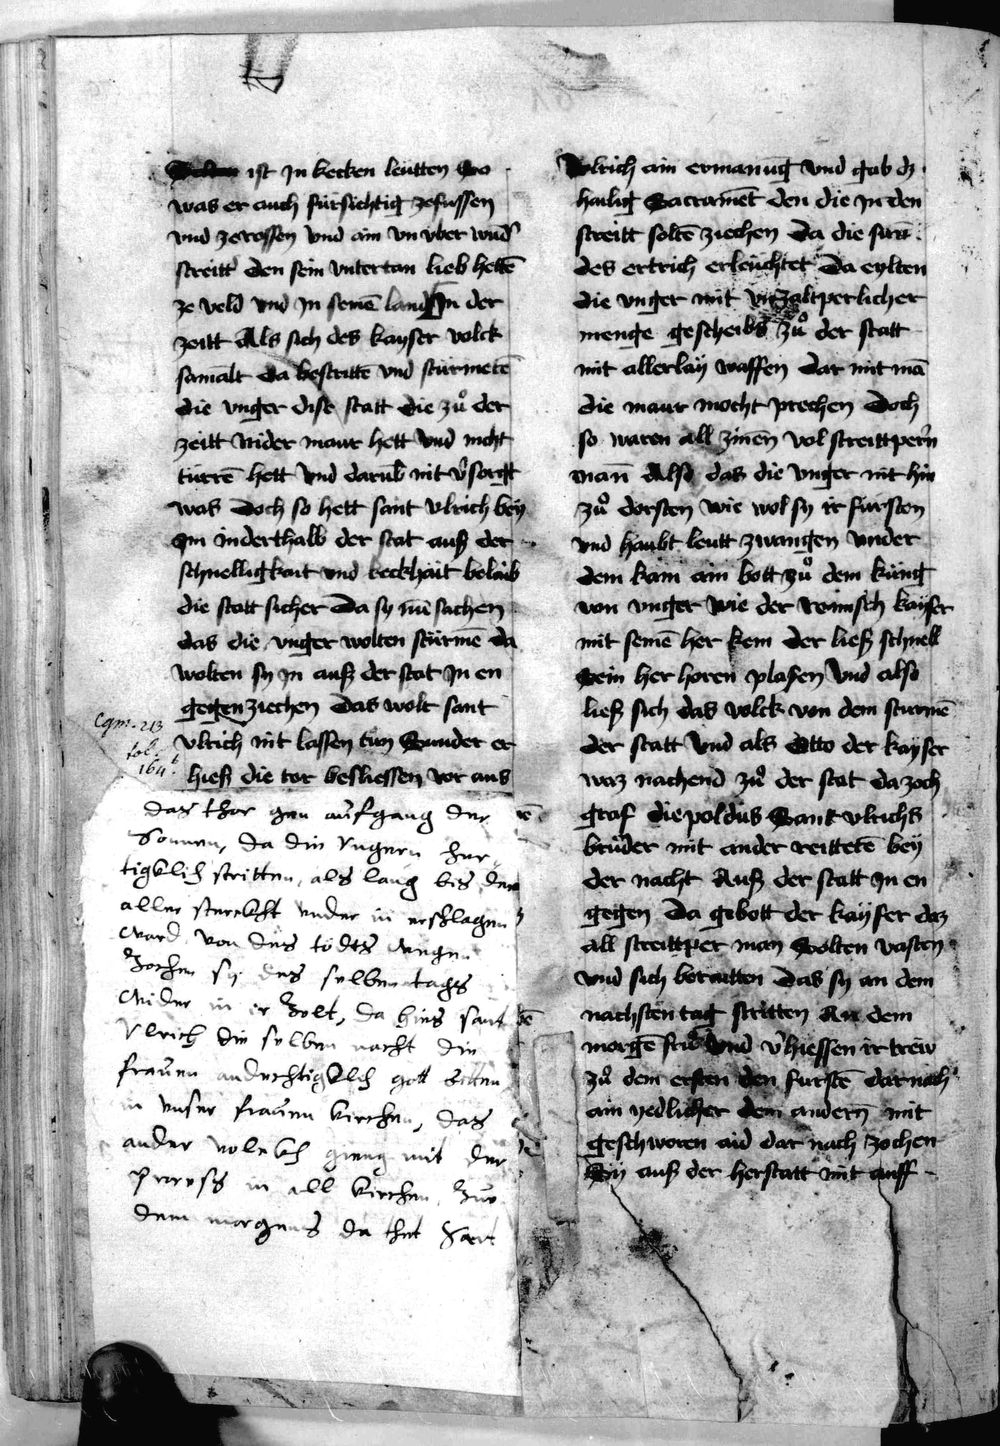 ist Jn kecken leutten
was er auch fürsichtig zefussen
vnd zerossen vnd ain vn vber wind˜
streitt den sein vntertan lieb hettē
ze veld vnd Jn seinē land Jn der
zeitt Als sich des kayser volck
samalt da bestrittē vnd stürmetē
die vnger dise statt die zuͦ der
zeitt Nider maur hett vnd nicht
türrē hett vnd darūb nit v˜sorgt
was Doch so hett sant vlrich bey
Jm Jnderthalb der stat auß der
schnelligkait vnd keckhait belaib
die statt sicher Da sy nū sachen
das die vnger wolten stürmē da
wolten sy Jn auß der stat Jn en
gegen ziechen Das wolt sant
vlrich nit lassen tun Sunder er
hieß die tor besliessen vor aus
Cgm. 213
fol.
164b.
das thor gen aufgang der
Sonnen, da die Vngern her
tigklich stritten, als lang bis der
aller sterckhst vnder in erschlagen
ward, von des todts wegen
Zochen sy des selben tags
wider in ir Zolt, da hies sant
Vlrich die selben nacht die
frauen andechtigklich gott bitten
in vnser frauen kirchen, das
ander volckh gieng mit der
Process in all kirchen, Zue
dem morgens da thet Sant
Vlrich ain ermanūg vnd gab dz
hailig Sacramēt den die Jn den
streitt soltē ziechen Da die sun
des ertrich erleuchtet Da eylten
die vnger mit vnzaltperlicher
menge gescheibs zuͦ der statt
mit allerlay waffen dar mit mā
die maur mocht prechen Doch
so waren all zinēn vol streittpern
mañ Also das die vnger nit hin
zuͦ dorsten wie wol sy ir fürsten
vnd haubt leutt zwangen vnder
dem kam ain bott zuͦ dem küng
von vnger wie der Römisch kayser
mit seinē her kem der ließ schnell
Sein her horen plasen vnd also
ließ sich das volck von dem sturmē
der statt vnd als Otto der kayser
waz nachend zuͦ der stat da zoch
graf diepoldus Sant vlrichs
bruͦder mit ander reittetē bey
der nacht Auß der statt Jn en
gegen Da gebott der kayser daz
all streittper man Solten vasten
vnd sich beraitten Das sy an dem
nachsten tag stritten An dem
morgē frü vnd v˜hiessen ir trew
zuͦ dem ersten den furstē darnach
ain yedlicher dem andern mit
geschworen aid dar nach zochen
Sy auß der herstatt mit auff